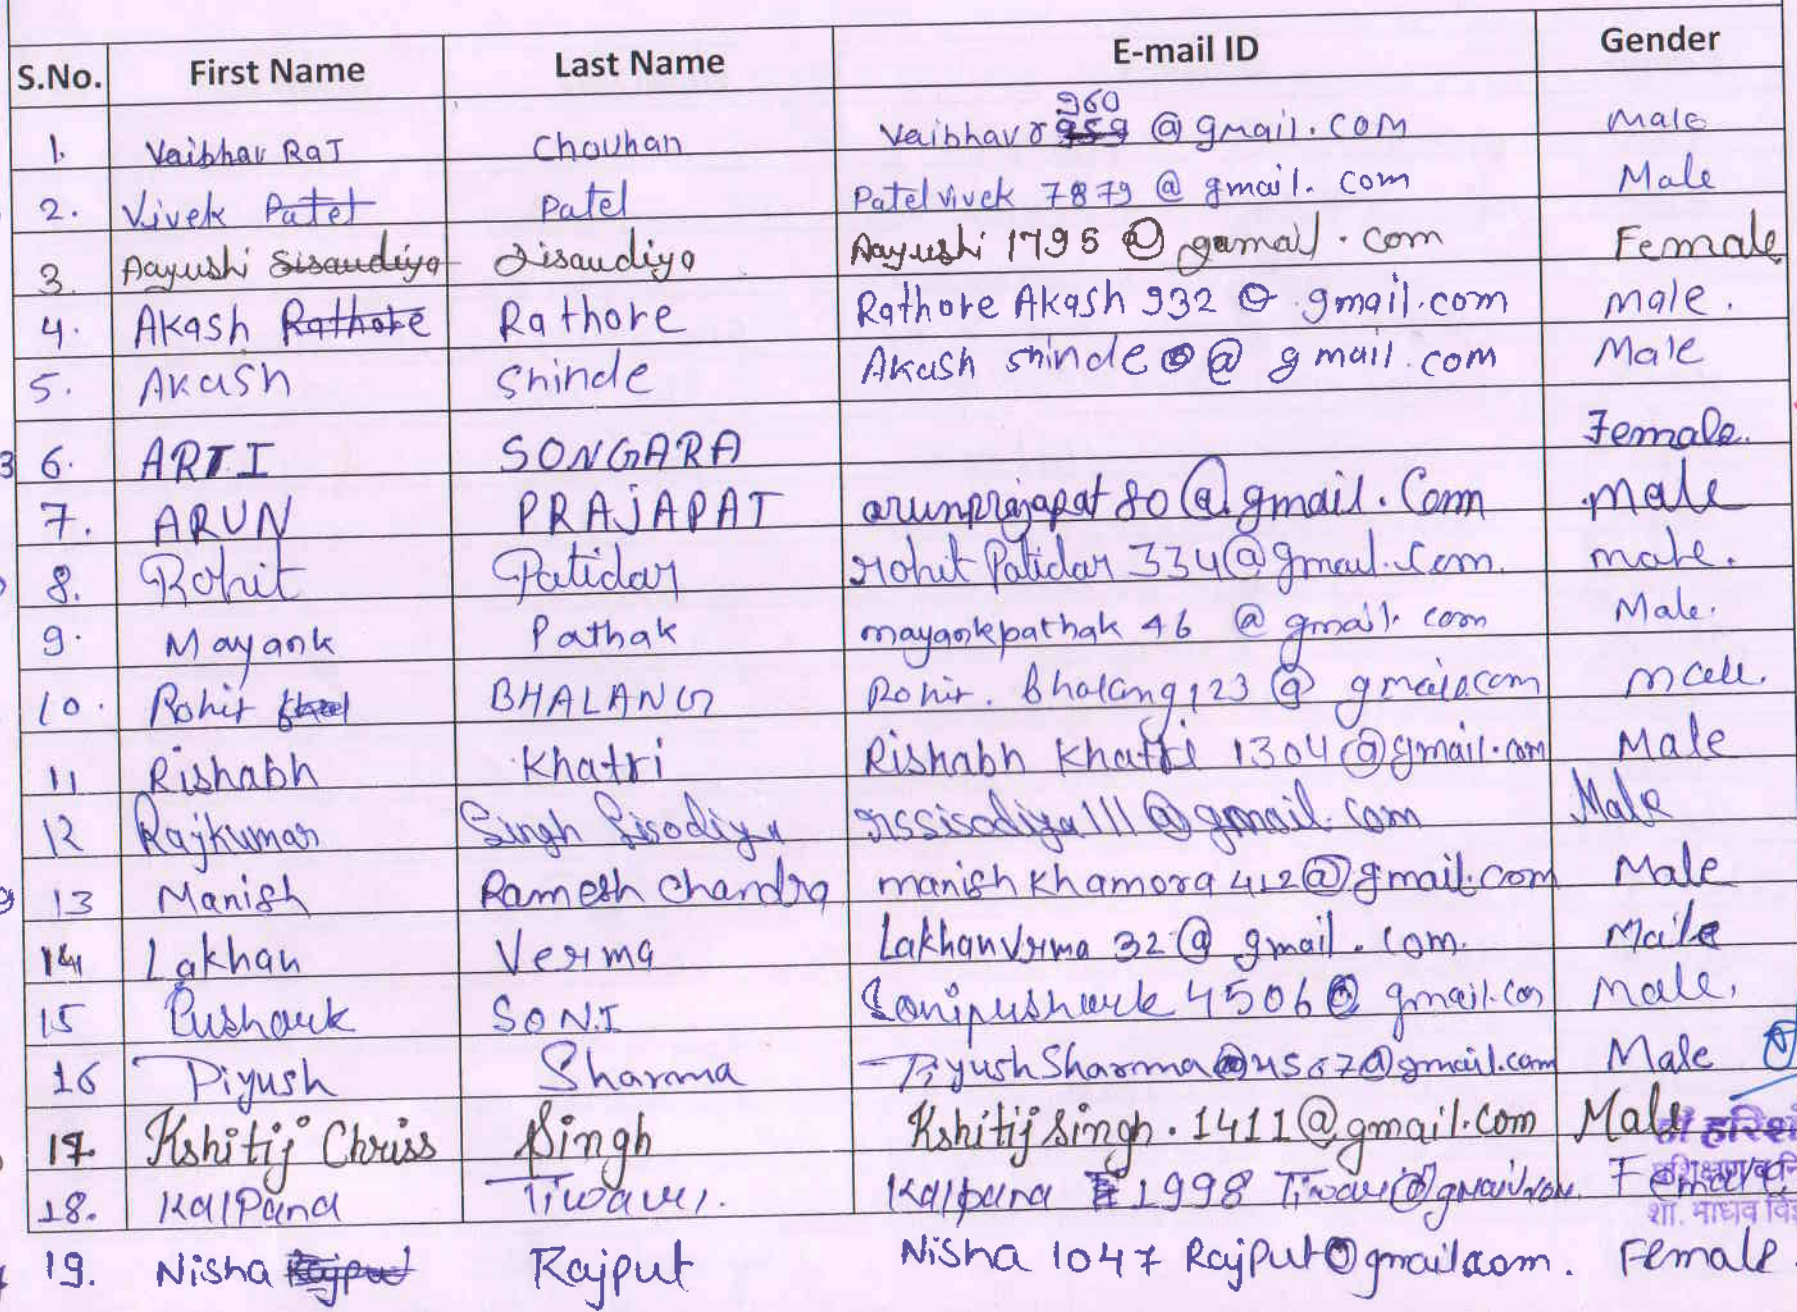 S.No. First Name Last Name E-mail ID Gender
1. Vaibhav Raj Chouhan Vaibhavr960@gmail.com Male
2. Vivek Patel Patel Patelvivek 7879 @ gmail. com Male
3. Aayushi Sisaudiya Sisaudiya Aayushi 1795 @ gamail . com Female
4. Akash Rathore Rathore Rathore Akash 932 @ gmail.com male.
5. Akash Shinde Akash shinde @ gmail.com Male
3 6. ARTI SONGARA Female.
7. ARUN PRAJAPAT arunprajapat 80@gmail.Com male
8. Rohit Patidar rohit Patidar 334@gmail.com. male.
9. Mayank Pathak mayankpathak 46 @ gmail. com Male.
10. Rohit BHALANG Rohit. Bhalang123 @ gmail.com male.
11 Rishabh Khatri Rishabh Khatri 1304@gmail.com Male
12 Rajkumar Singh Sisodiya rssisodiya111@gmail.com Male
13 Manish Ramesh Chandra manish khamora 412@gmail.com Male
14 Lakhan Verma Lakhanvrma 32@ gmail. com. Male
15 Pushark SONI Sonipushark 4506@ gmail.com Male.
16 Piyush Sharma Piyush Sharma 4567@gmail.com Male
17. Kshitij Chriss Singh Kshitijsingh.1411@gmail.com Male
18. Kalpana Tiwari. Kalpana 1998 Tiwari@gmail.com. Female
19. Nisha Rajput Rajput Nisha 1047 Rajput@gmail.com. Female.
शा. माधव